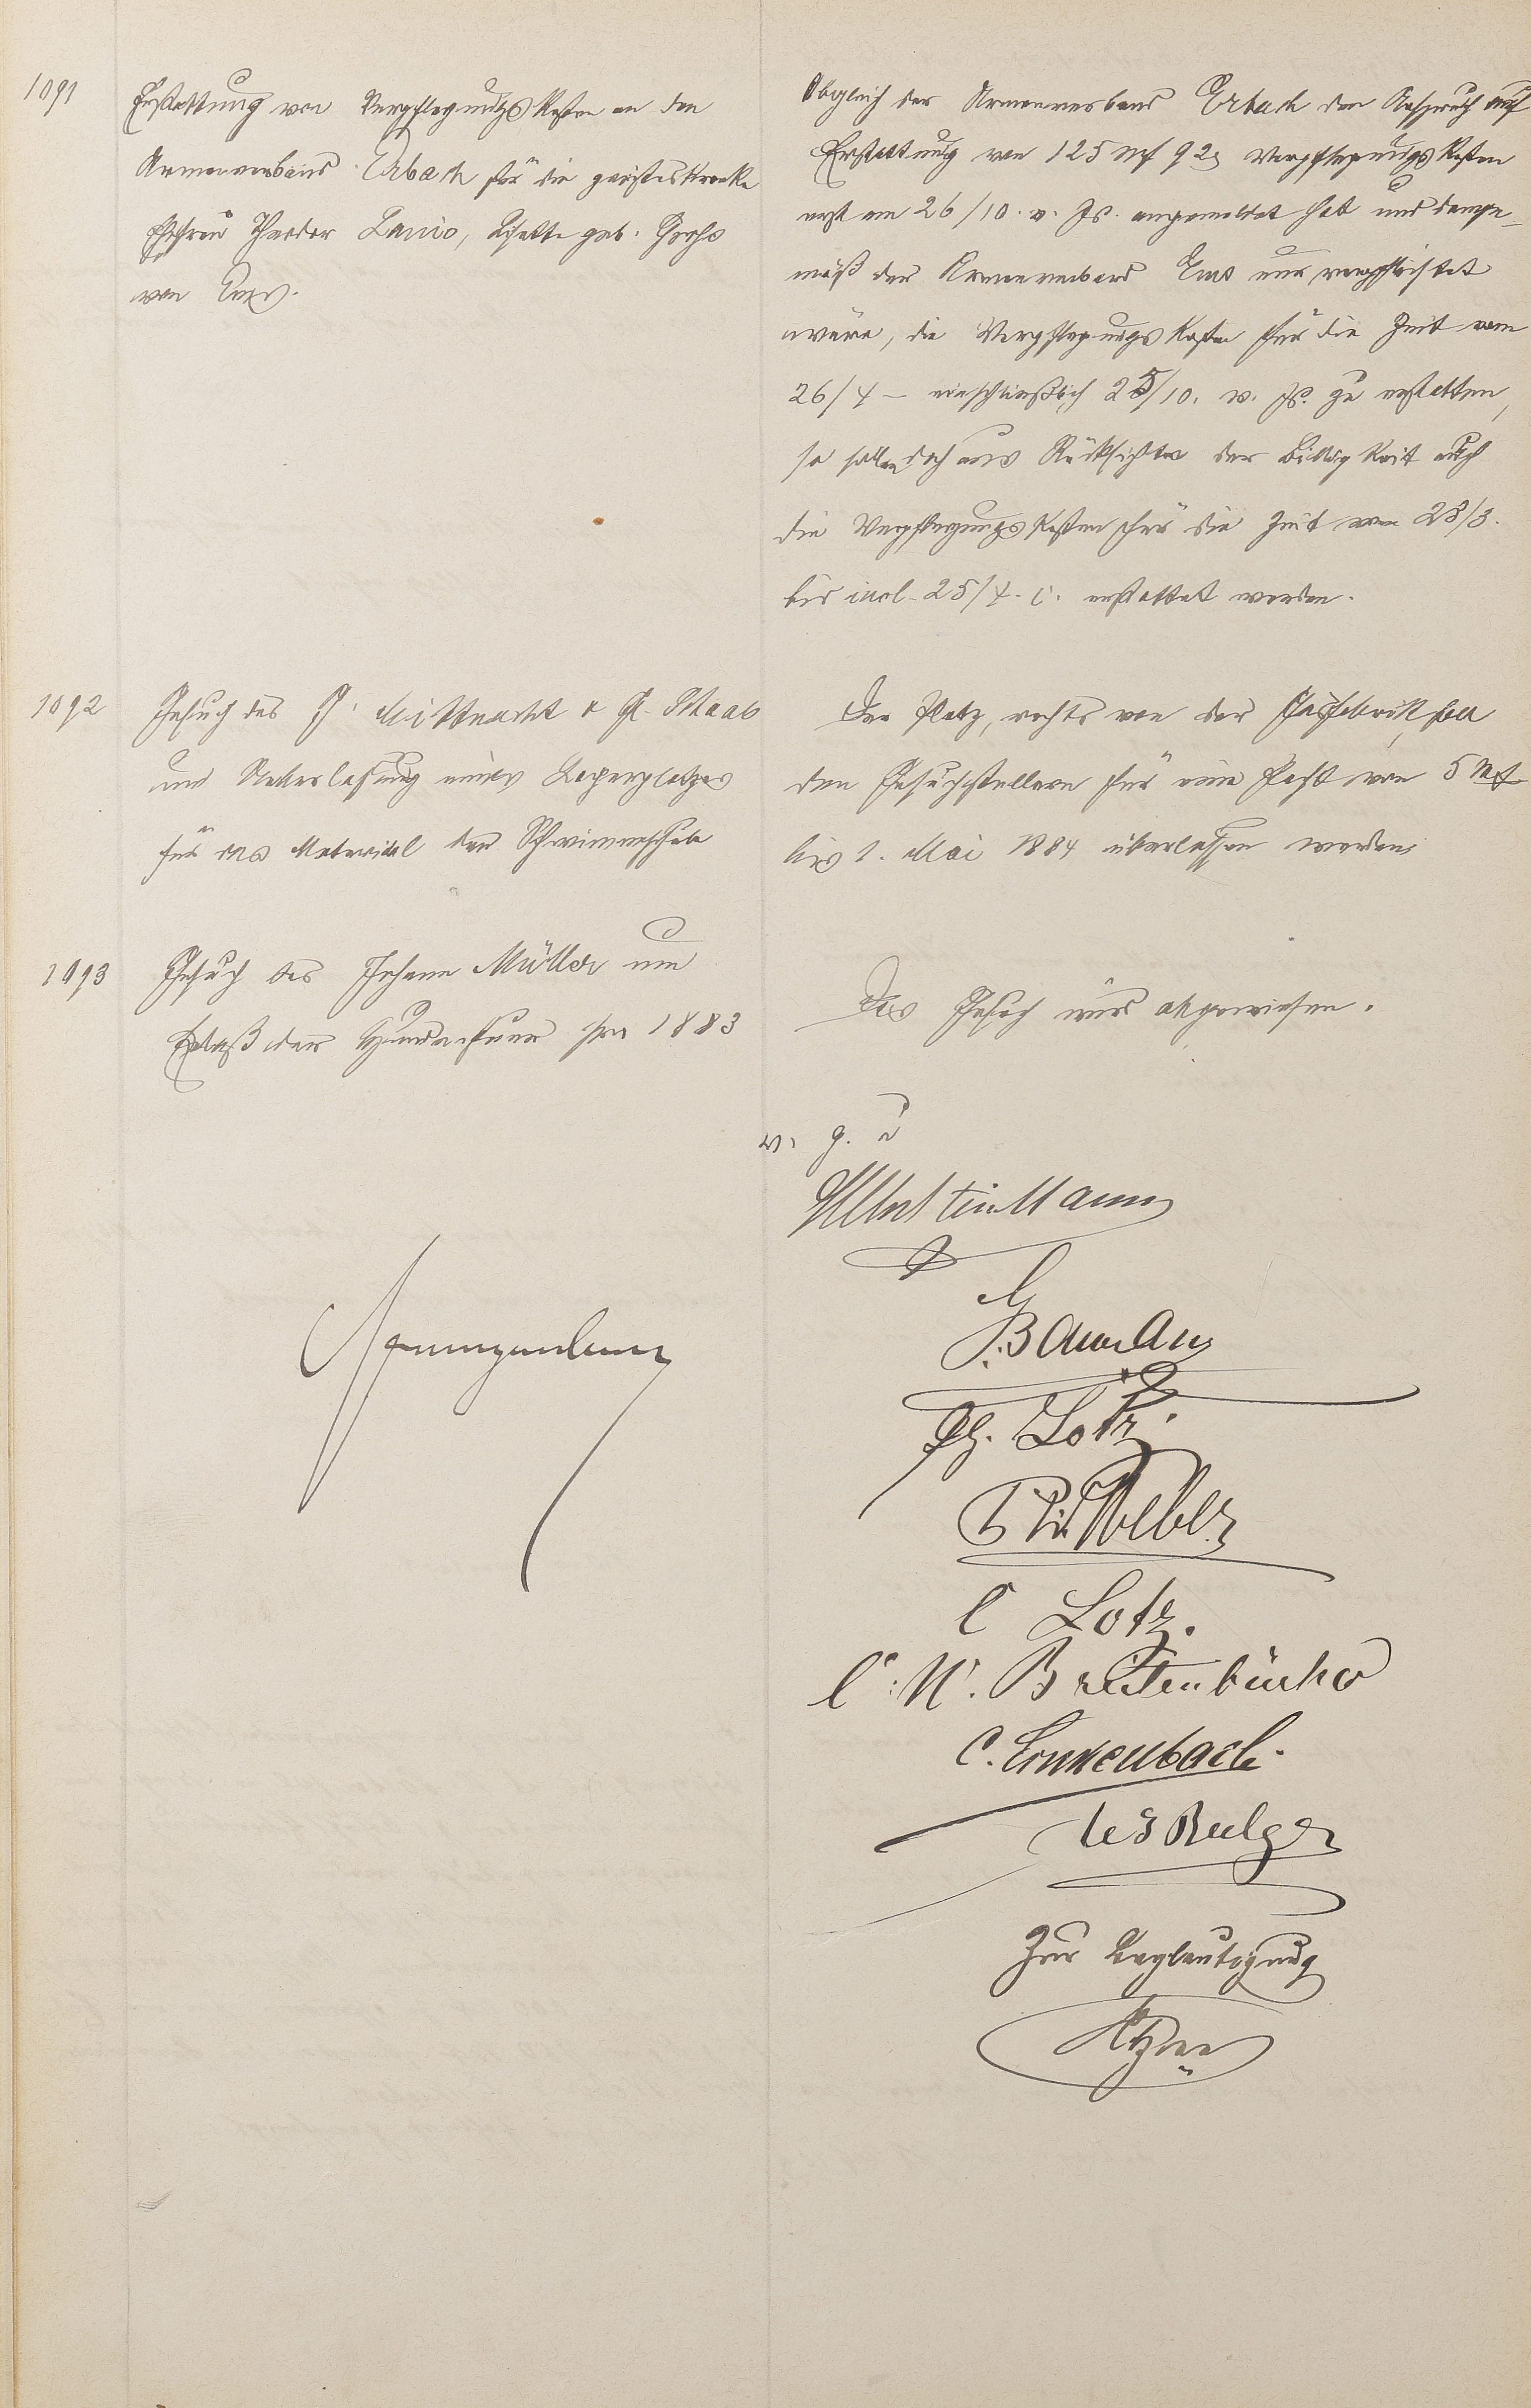 1091
Erstattung von Verpflegungskosten an den
Armenverband Erbach für die geisteskranke
Ehefrau Theodor Lanio, Lisette geb.
von Ems.
Obgleich der Armenverband Erbach den Anspruch auf
Erstattung von 125 Mk 92 Verpflegungskosten
erst am 26/10. v. Js. angemeldet hat und demge-
mäß der Armenverband Ems nur verpflichtet
wäre, die Verpflegungskosten für die Zeit vom
26/4 - einschließlich 25/10. v. Js. zu erstatten,
so sollen doch aus Rücksichten der Billigkeit auch
die Verpflegungskosten für die Zeit vom 28/3.
bis incl. 25/4. c. erstattet werden.
1092
Gesuch des J. Mittnacht & A. Staab
um Ueberlassung eines Lagerplatzes
für das Material der Schwimmschule
Der Platz, rechts von der Gasfabrik, soll
den Gesuchstellern für eine Pacht von 5 Mk
bis 1. Mai 1884 überlassen werden
1093
Gesuch des Johann Müller um
Erlaß der Hundesteuer pro 1883
Das Gesuch wird abgewiesen.
v. g. u
Baumann
Ph. Lotz.
Weber
C Lotz.
C. W. Breitenbücher
C. Linkenbach.
Zur Beglaubigung